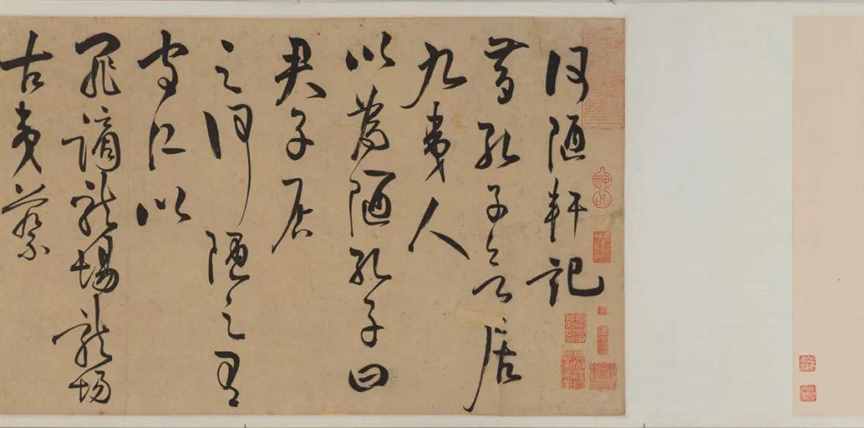 何陋軒記
昔孔子欲居
九夷人
以為陋孔子曰
君子居
之何陋之有
守仁以
罪謫龍場龍場
古夷蔡